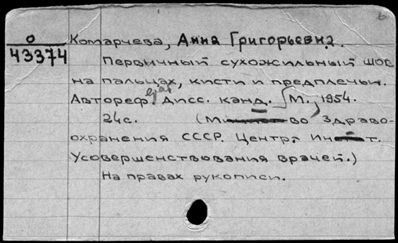 О
43374
Комарчева, Анна Григорьевна.
Первичный сухожильный шов
на пальцах, кисти и предплечьи.
Автореф. Дисс. канд. М., 1954.
24с. (М во Здраво-
охранения СССР. Центр. Ин т.
Усовершенствования врачей.)
На правах рукописи.